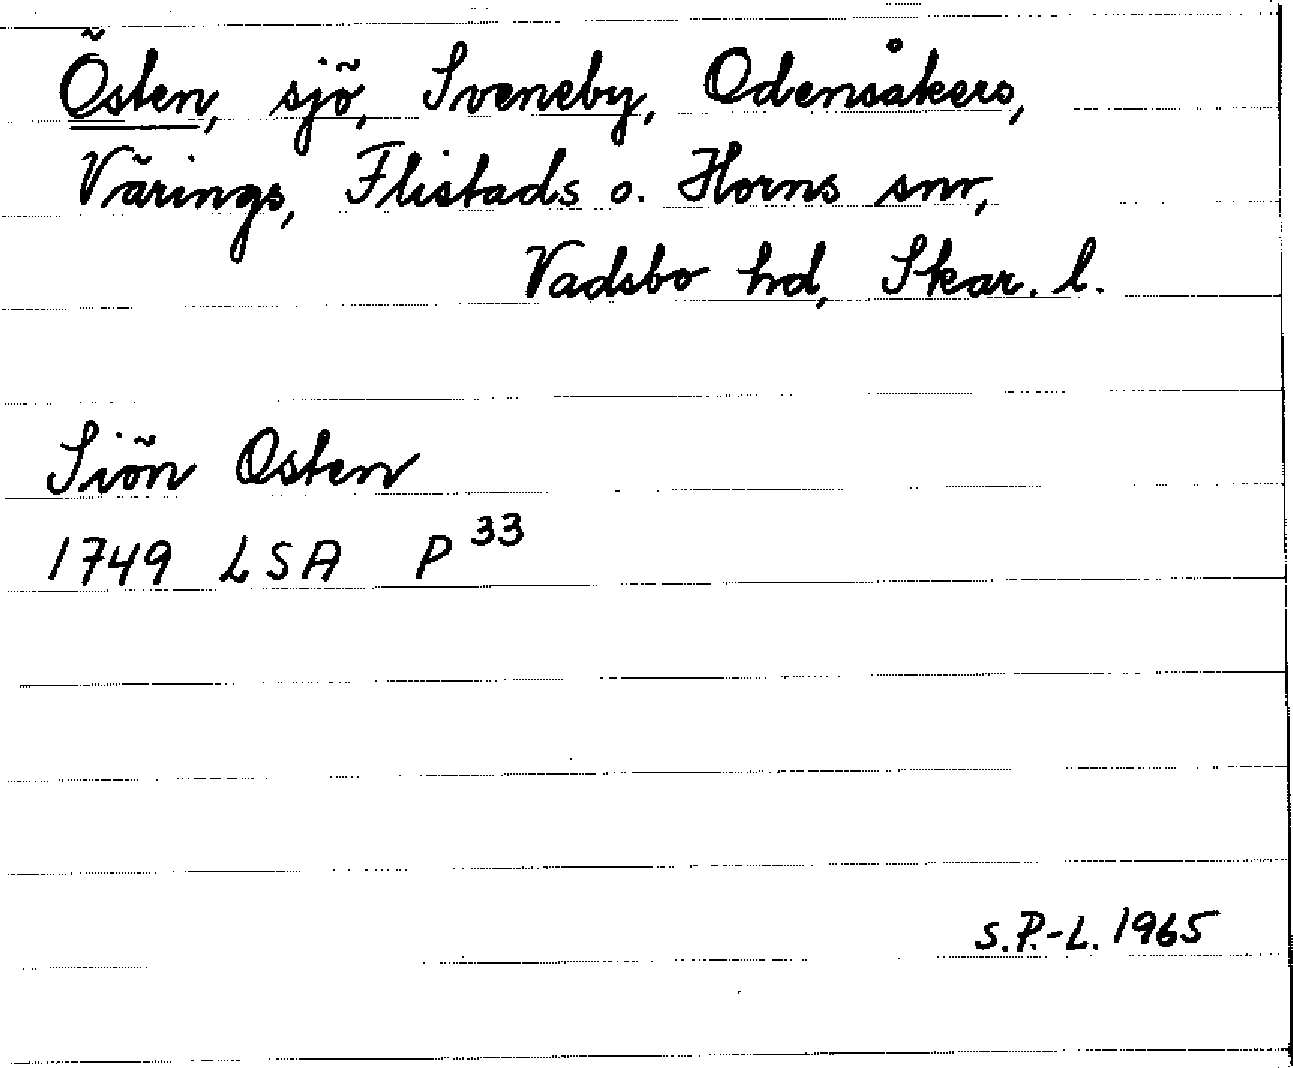 Östen, sjö, Sveneby, Odensåkers,
Värings, Flistads o. Horns snr,
Vadsbo hd, Skar. l.
Siön Osten
1749 LSA P 33
S.P.-L. 1965